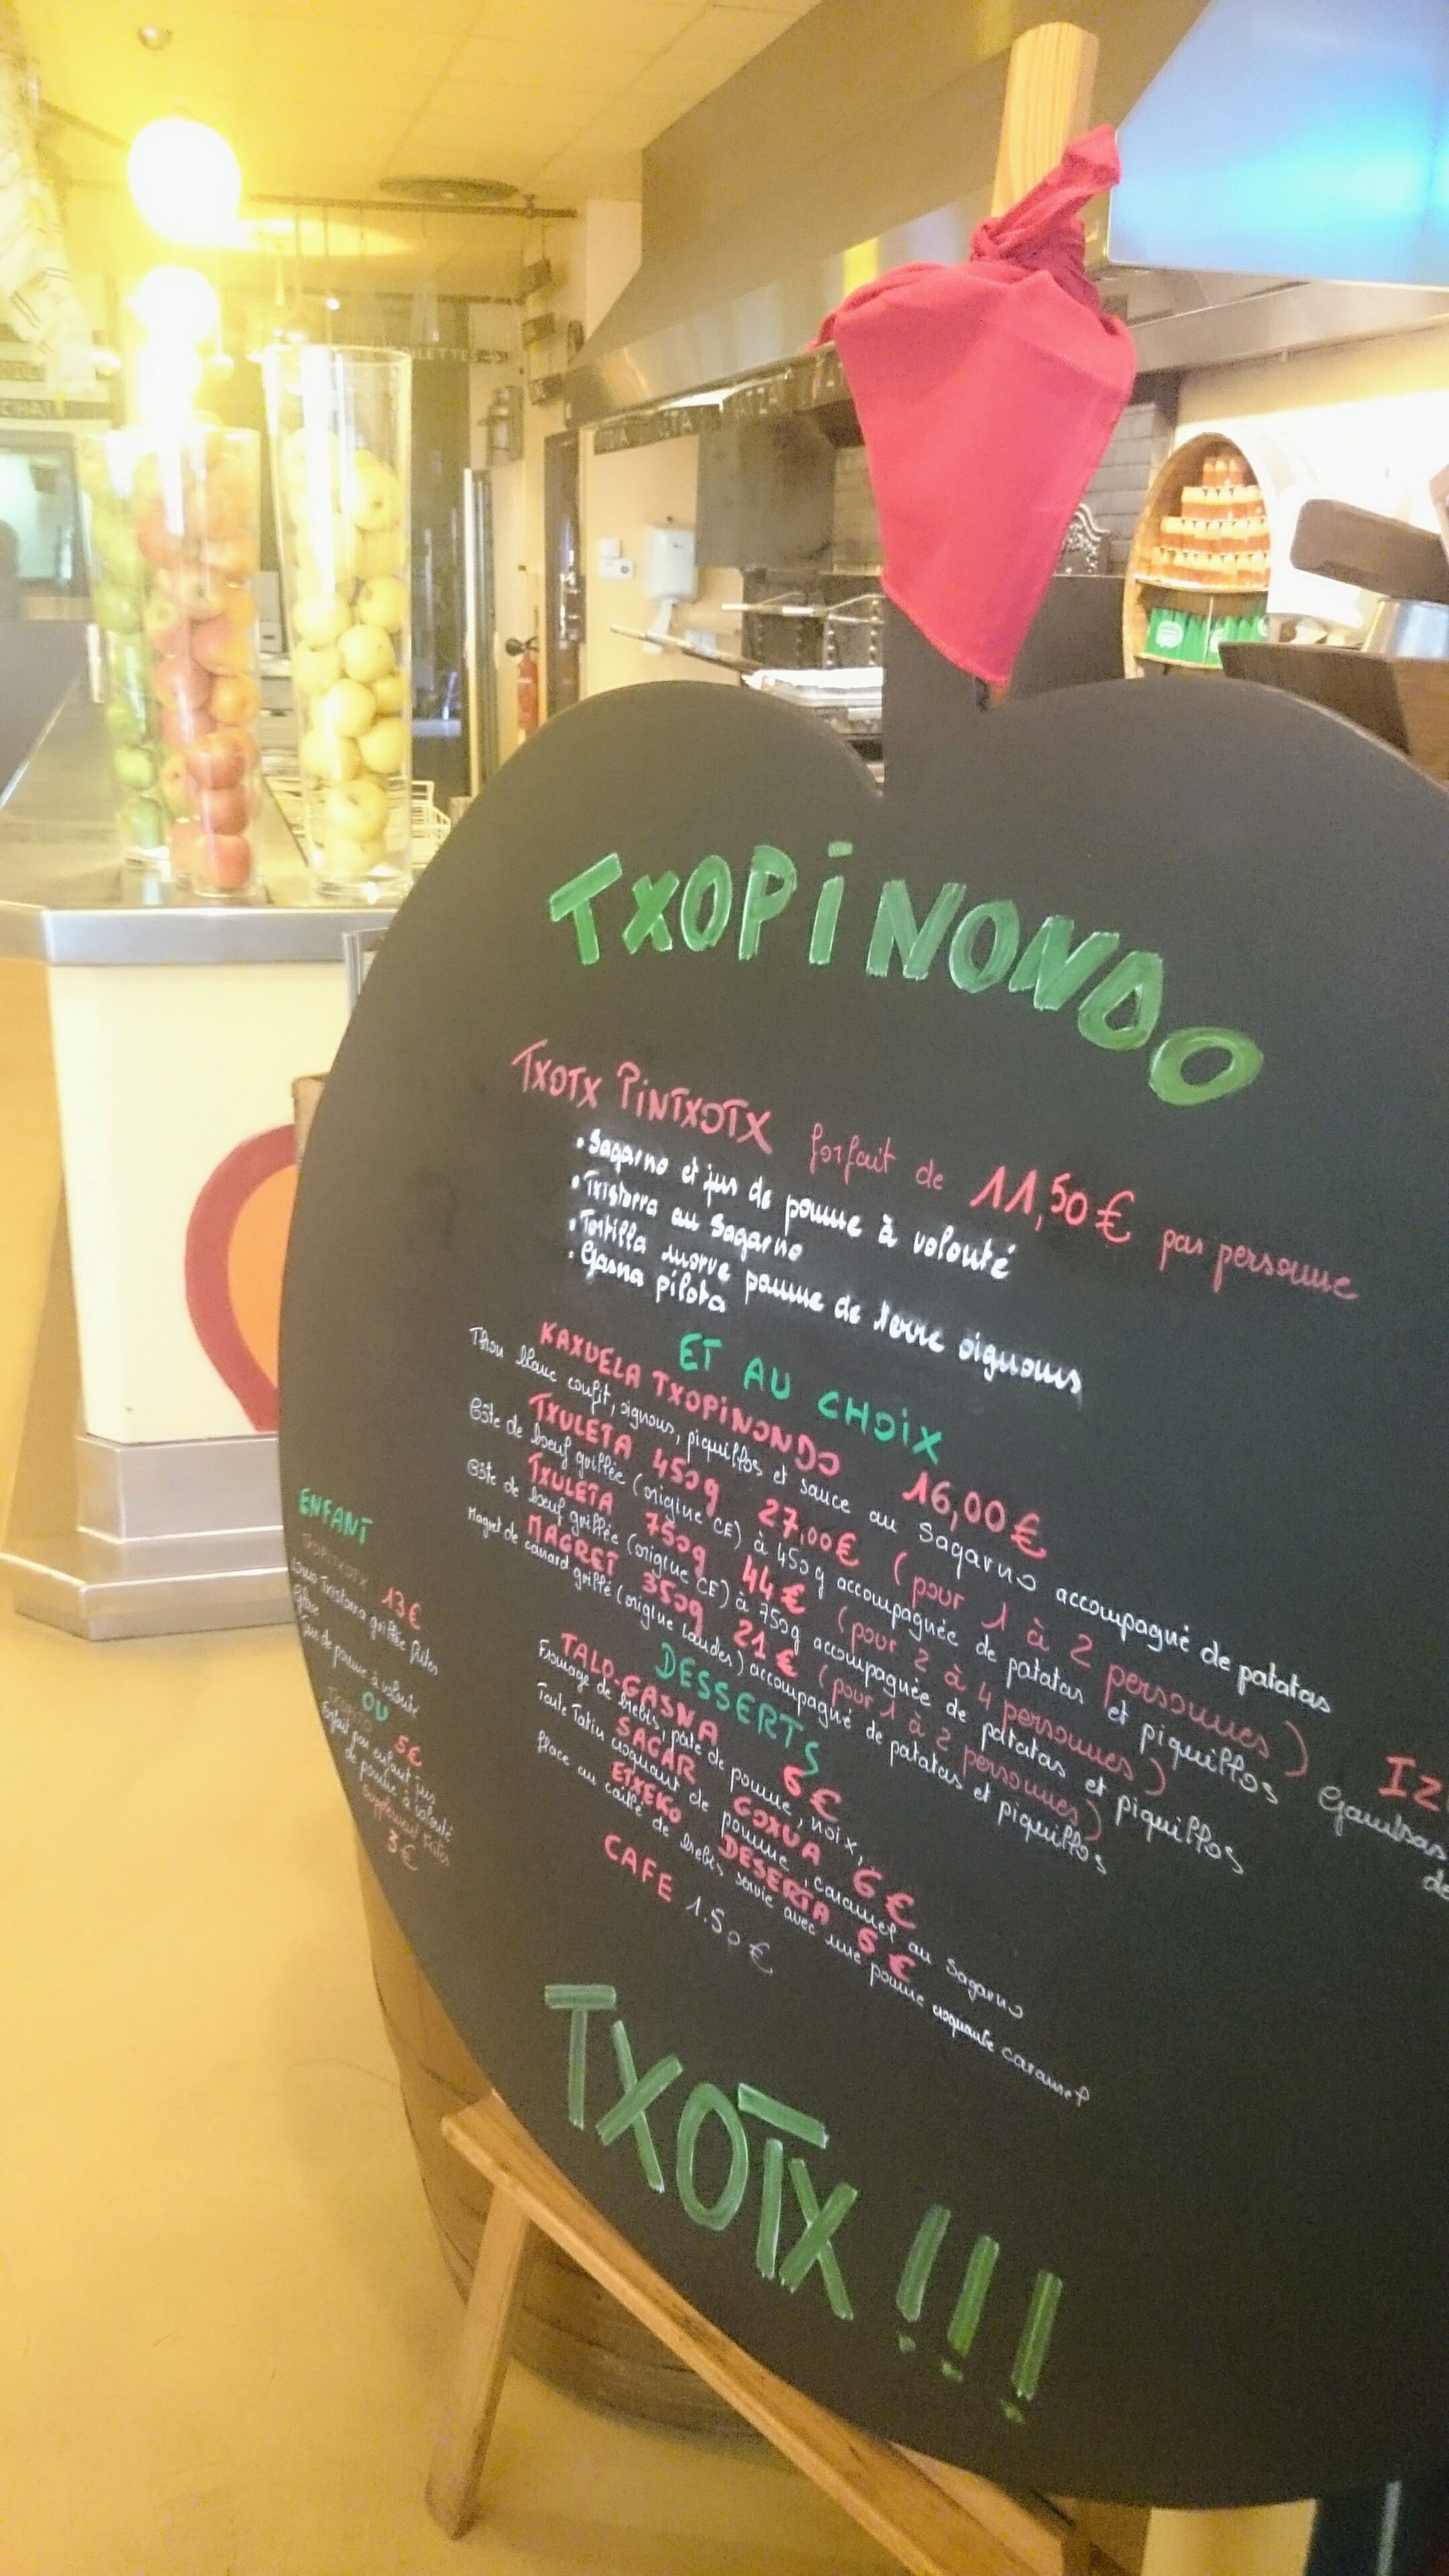 TXOPINONDO
TXOTX PINTXOTX forfait de 11,50€ par personne
• Sagarno et jus de pomme à volonté
• Txistorra au Sagarno
• Tortilla morue pomme de terre oignons
• Gasna pilota
ET AU CHOIX
KAXUELA TXOPINONDO 16,00€
Thon blanc confit, oignons, piquillos et sauce au Sagarno accompagné de patatas
TXULETA 450g 27,00€ (pour 1 à 2 personnes)
Côte de boeuf grillée (origine CE) à 450g accompagnée de patatas et piquillos
TXULETA 750g 44€ (pour 2 à 4 personnes)
Côte de boeuf grillée (origine CE) à 750g accompagnée de patatas et piquillos
MAGRET 350g 21€ (pour 1 à 2 personnes)
Magret de canard grillé (origine Landes) accompagné de patatas et piquillos
DESSERTS
TALO GASNA 6€
Fromage de brebis, pâte de pomme, noix,
SAGAR GOXUA 6€
Tarte Tatin croquant de pomme, caramel au Sagarno
ETXEKO DESERTA 6€
Glace au caillé de brebis servie avec une pomme croquante caramel
CAFE 1.50€
TXOTX !!!
ENFANT
13€
Lomo Txistorra grillée frites
Glace
Jus de pomme à volonté
OU
5€
Forfait par enfant jus
de pomme à volonté
supplément frites
3€
Gambas